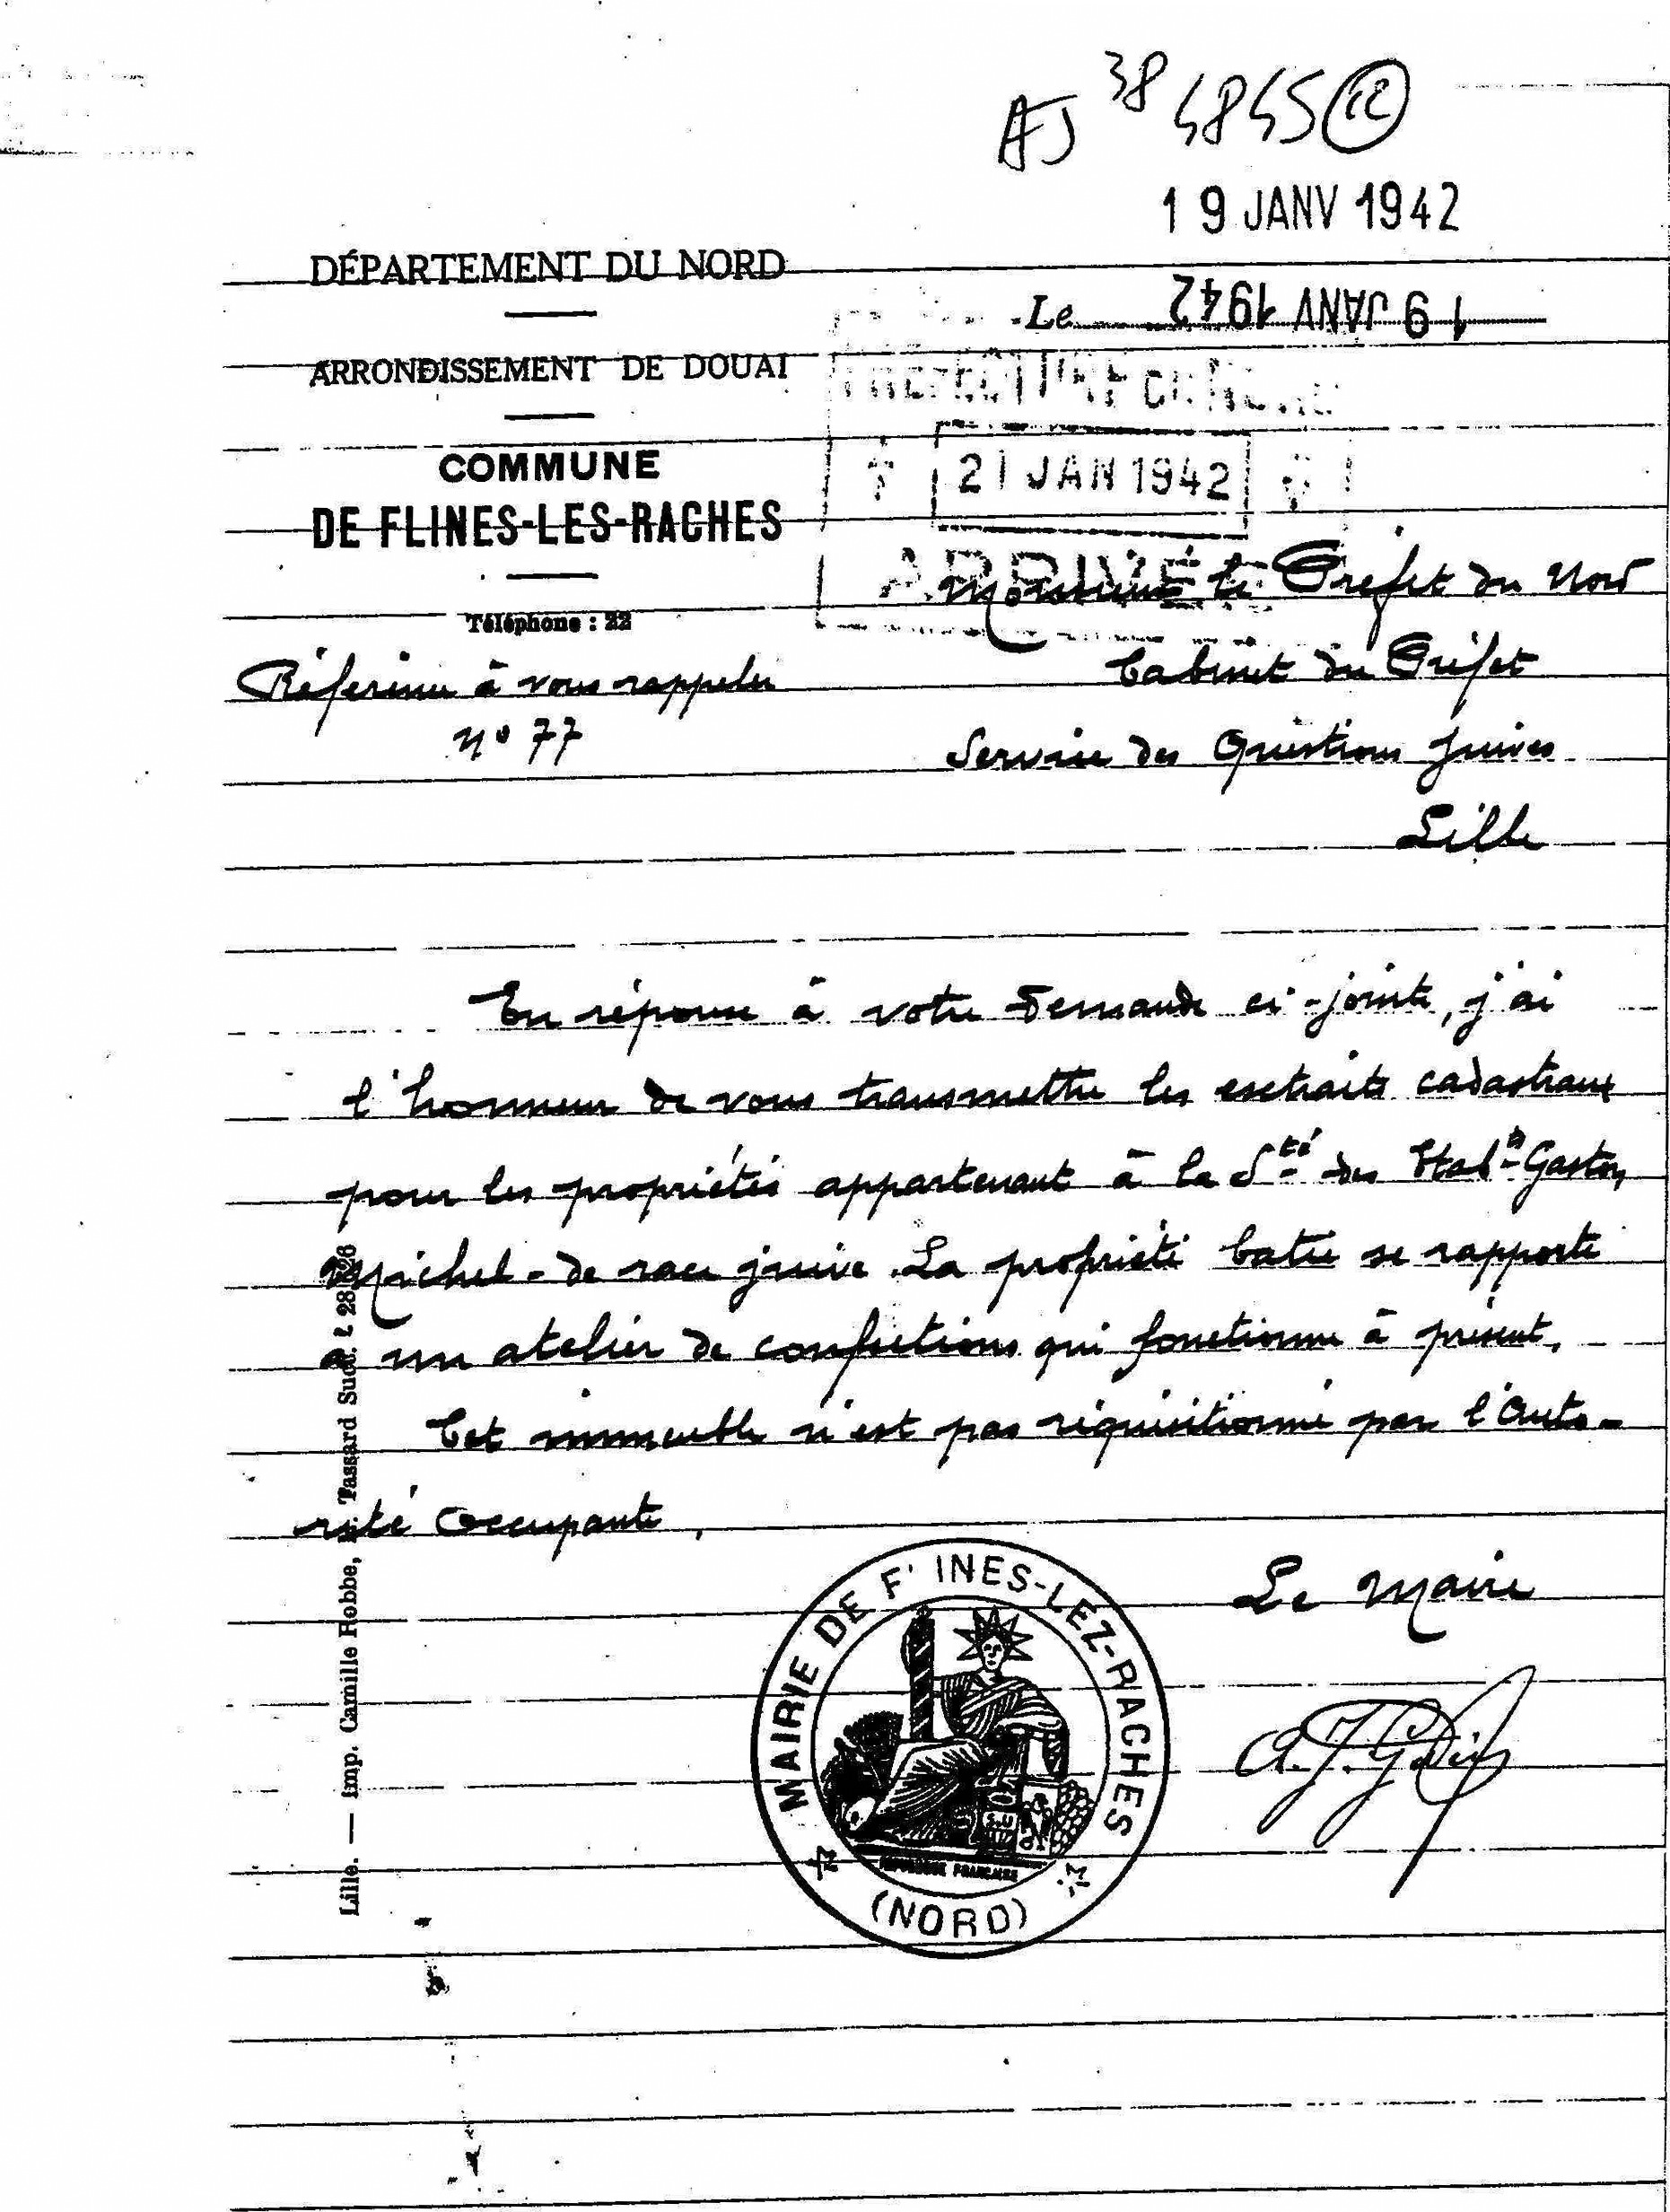 AJ 38 4845 12
19 JANV 1942
DÉPARTEMENT DU NORD
Le 19 JANV 1942
ARRONDISSEMENT DE DOUAI
PREFECTURE DU NORD
COMMUNE
21 JAN 1942
DE FLINES-LES-RACHES
ARRIVÉE
Monsieur le Préfet du Nord
Téléphone : 22
Cabinet du Préfet
Référence à vous rappeler
n° 77
Service des Questions Juives
Lille
En réponse à votre demande ci-jointe, j'ai
l'honneur de vous transmettre les extraits cadastraux
pour les propriétés appartenant à la Sté des Etabts Gaston
Michel - de race juive. La propriété batie se rapporte
à un atelier de confections qui fonctionne à présent.
Cet immeuble n'est pas réquisitionné par l'Auto-
rité Occupante.
Le Maire
MAIRIE DE F' INES-LEZ-RACHES
(NORD)
REPUBLIQUE FRANCAISE
Lille. — Imp. Camille Robbe, Tassard Suc. 28